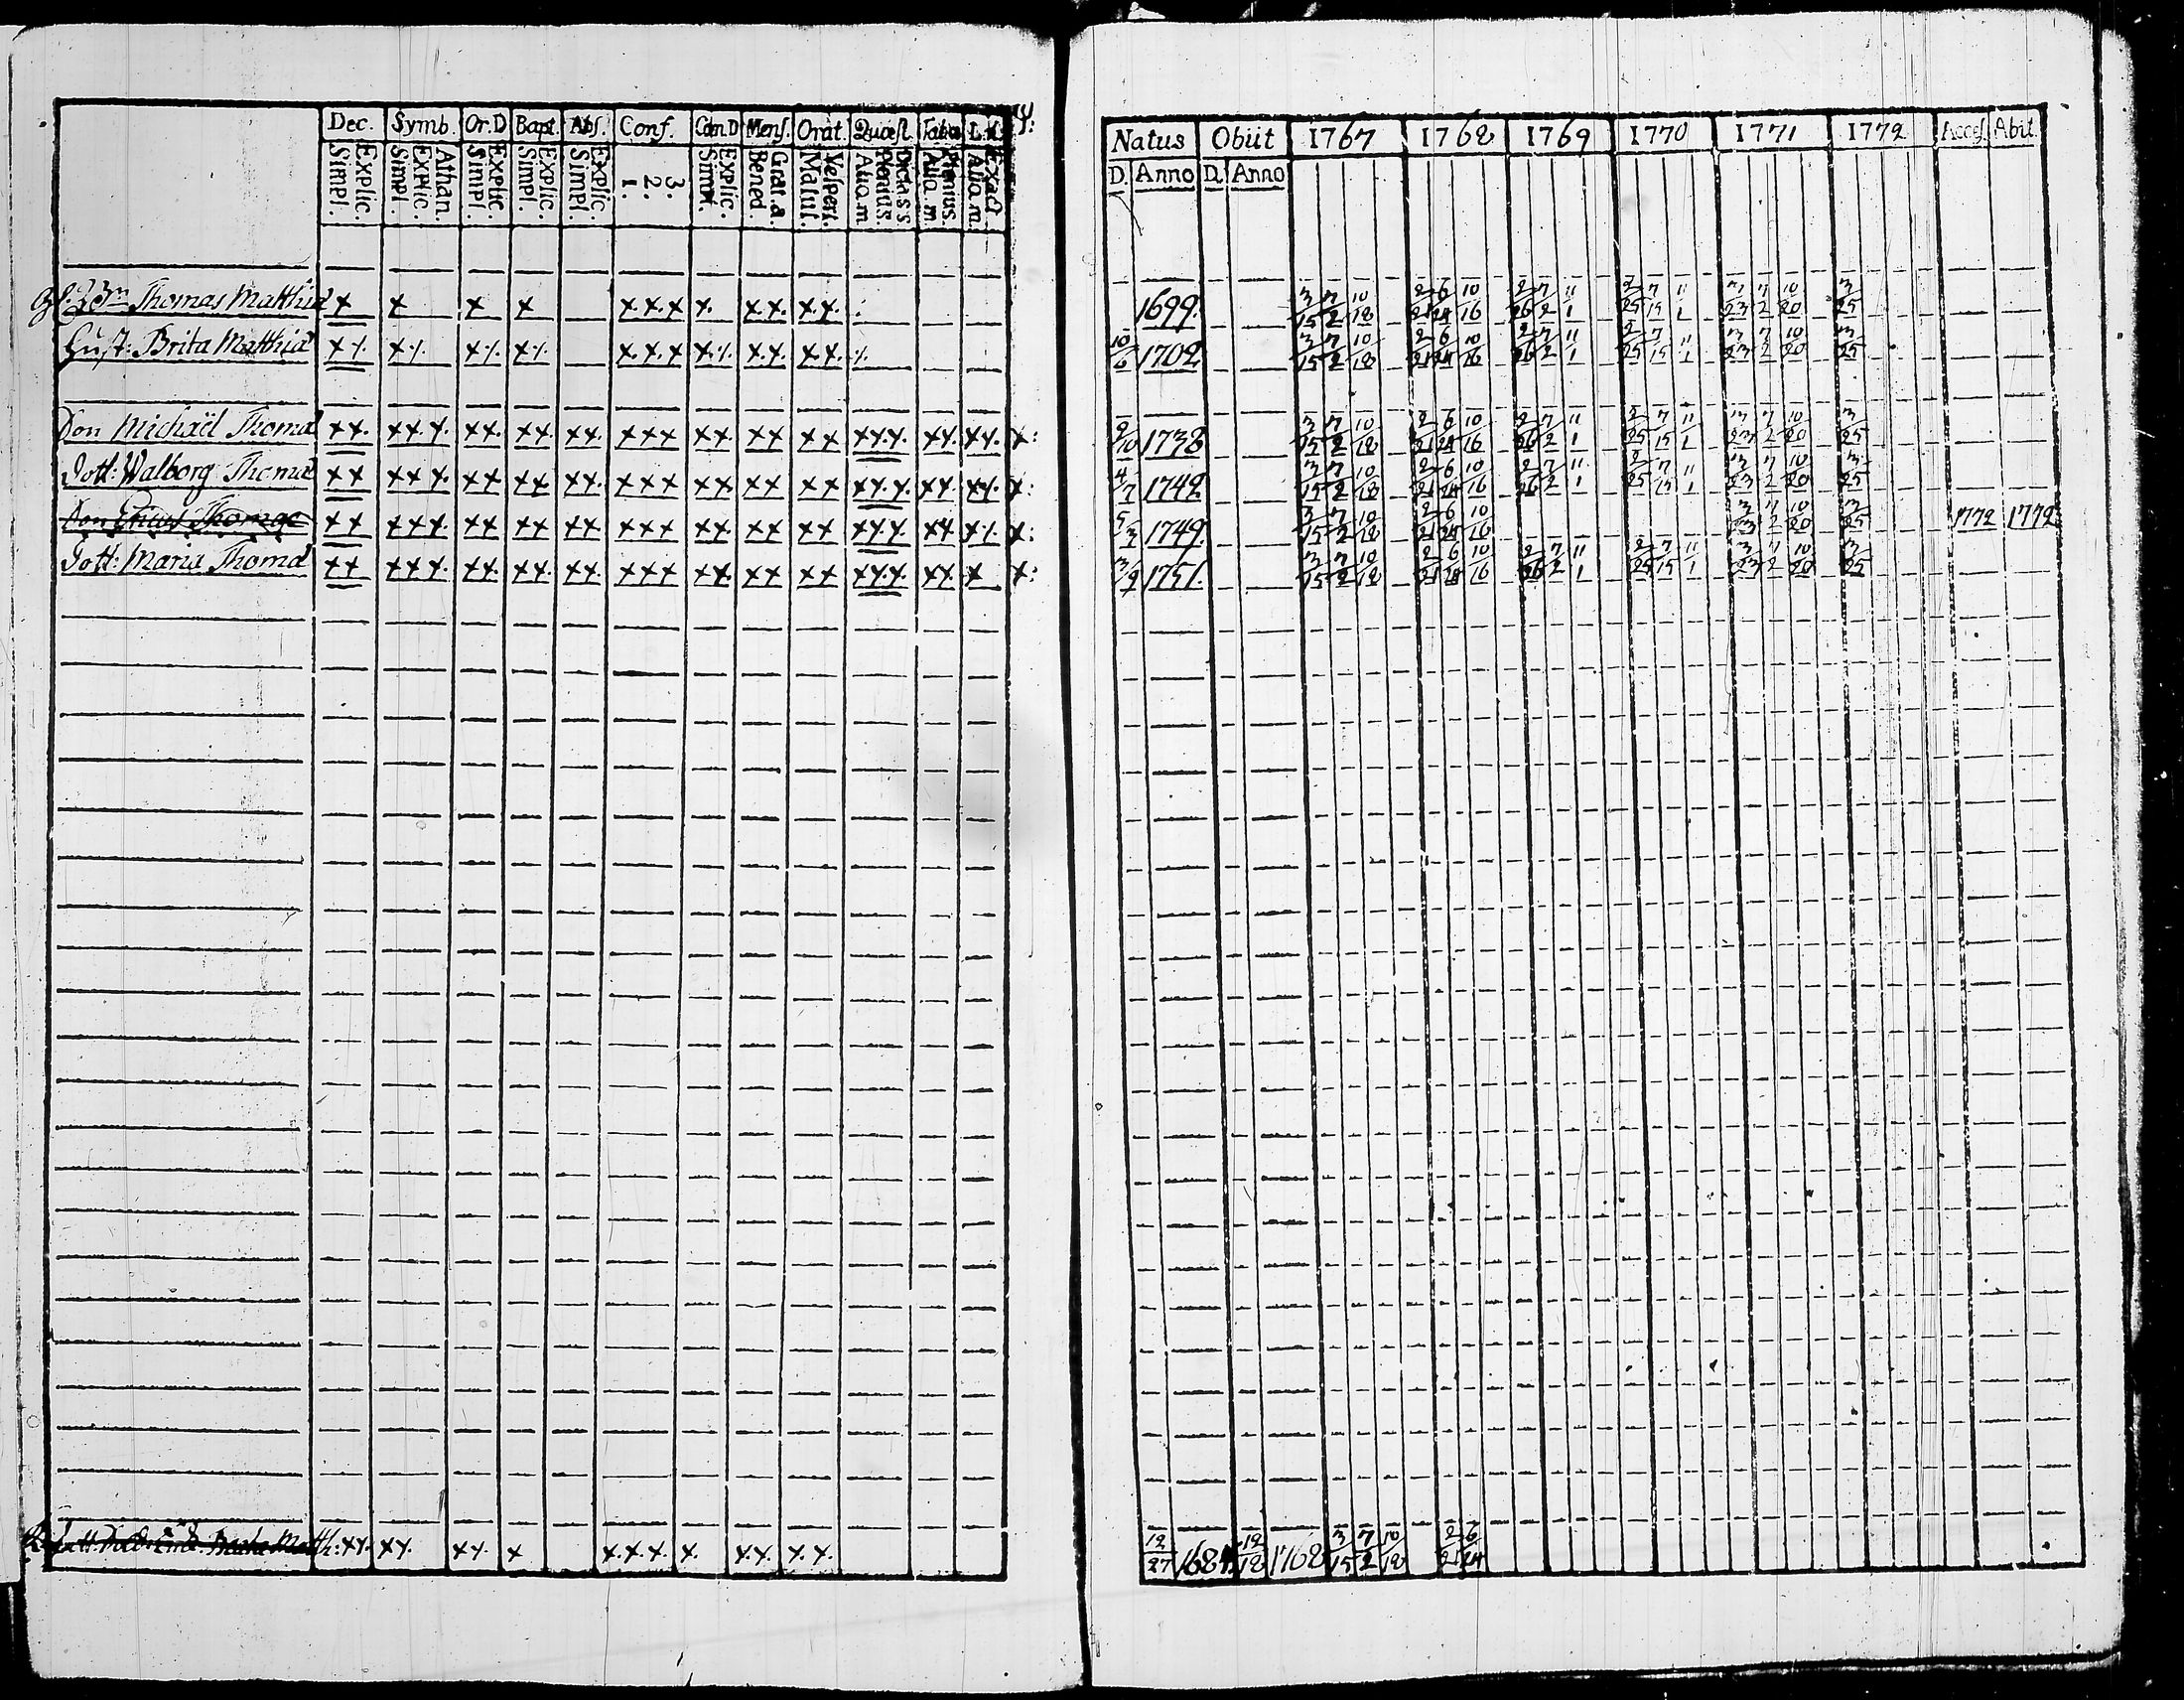 4:
Dec. Symb. Or.D Bapt. Abs. Conf. Cœn.D Mens. Orat. Quæst. Taba L.n.
Simpl. Explic. Simpl. Explic. Athan. Simpl. Explic. Simpl. Explic. Simpl. Explic. 1. 2. 3. Simpl. Explic. Bened. Grat.a. Matut. Vespert. Aliq.m. Plenius. Dicta S.S. Aliq.m. Plenius. Aliq.m. Exact
Thomas Matthiæ x x x x x.x.x x. x.x. x.x.
Hust: Brita Matthiæ x x x x x.x.x x. x.x. x.x.
Son Michaël Thomæ xx. xxx. xx. xx. xx. xxx xx. xx xx xx.x. xx. xx. x:
Dott: Walborg Thomæ xx xxx. xx xx xx. xxx xx xx xx xx.x. xx. xx. x:
Son Thomæ xx xxx. xx xx xx xxx xx xx xx xx.x. xx x. x:
Dott: Maria Thomæ xx xxx. xx. xx. xx. xxx xx. xx xx xx.x. xx. x x:
Matth: xx. xx. xx. x x.x.x. x. x.x. x.x.
Natus Obiit 1767 1768 1769 1770 1771 1772 Acces. Abit.
D. Anno D. Anno
1699. 3/15 7/2 10/18 2/21 6/24 10/16 2/26 7/2 11/1 2/25 7/15 11/1 3/23 7/2 10/20 3/25
10/6 1702 3/15 7/2 10/18 2/21 6/24 10/16 2/26 7/2 11/1 2/25 7/15 11/1 3/23 7/2 10/20 3/25
2/10 1738 3/15 7/2 10/18 2/21 6/24 10/16 2/26 7/2 11/1 2/25 7/15 11/1 3/23 7/2 10/20 3/25
4/7 1742 3/15 7/2 10/18 2/21 6/24 10/16 2/26 7/2 11/1 2/25 7/15 11/1 3/23 7/2 10/20 3/25
5/3 1749. 3/15 7/2 10/18 2/21 6/24 10/16 3/23 7/2 10/20 3/25 1772 1772
3/2 1751. 3/15 7/2 10/18 2/21 6/24 10/16 2/26 7/2 11/1 2/25 7/15 11/1 3/23 7/2 10/20 3/25
12/27 1684. 12/18 1768 3/15 7/2 10/18 2/21 6/24